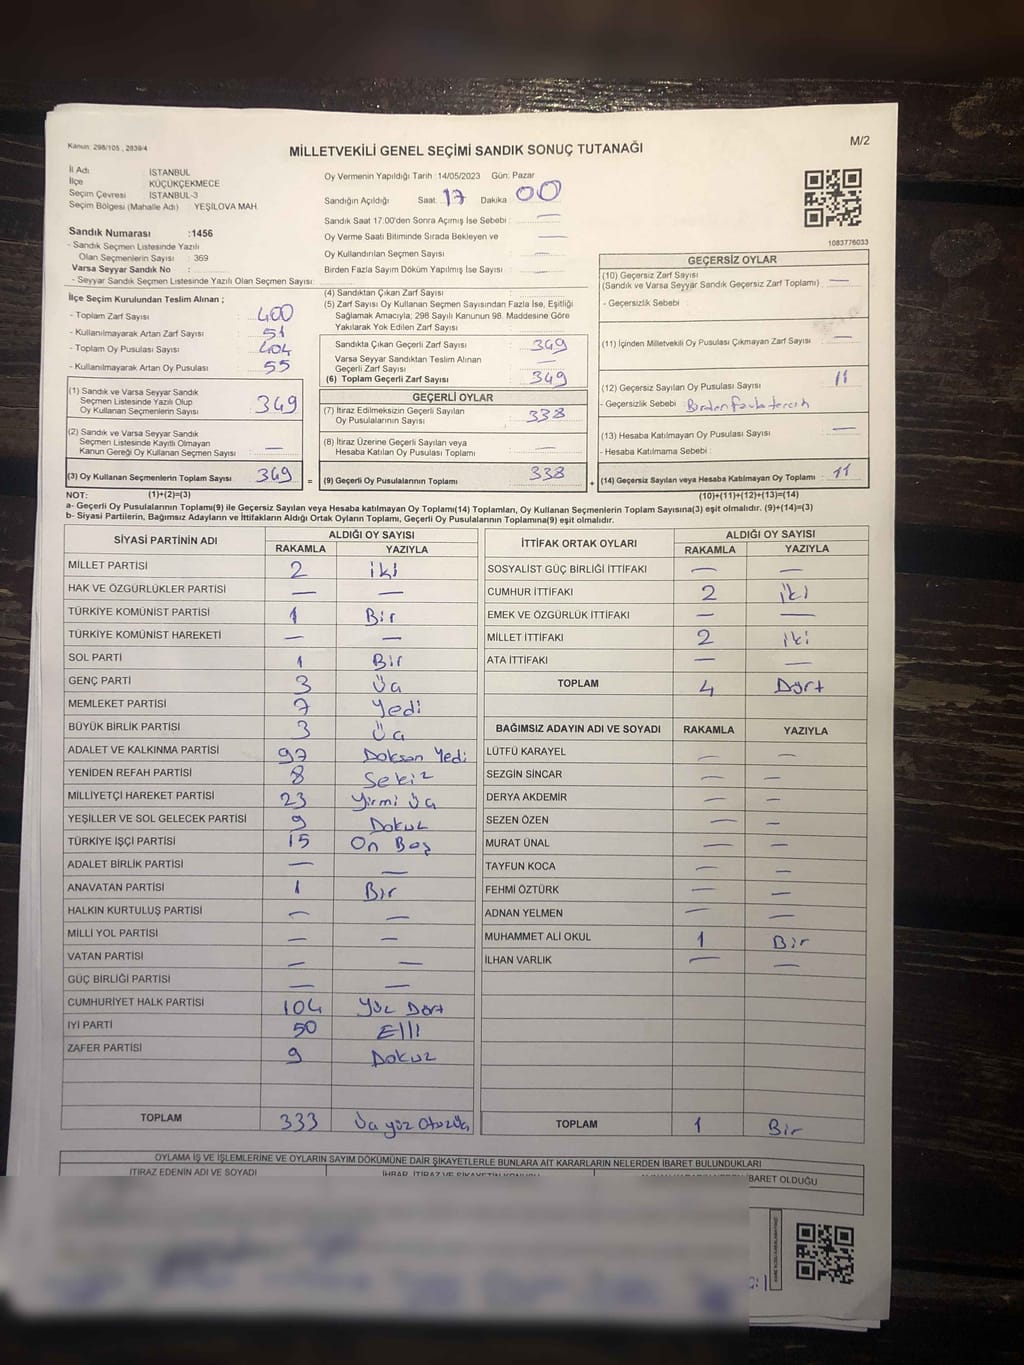 Kanun: 298/105, 2839/4
M/2
MİLLETVEKİLİ GENEL SEÇİMİ SANDIK SONUÇ TUTANAĞI
İl Adı : İSTANBUL
İlçe KÜÇÜKÇEKMECE
Seçim Çevresi İSTANBUL-3
Seçim Bölgesi (Mahalle Adı) : YEŞİLOVA MAH.
Oy Vermenin Yapıldığı Tarih :14/05/2023 Gün: Pazar
Sandığın Açıldığı Saat: 17 Dakika 00
Sandık Saat 17.00'den Sonra Açımış İse Sebebi : —
Oy Verme Saati Bitiminde Sırada Bekleyen ve —
Oy Kullandırılan Seçmen Sayısı —
Birden Fazla Sayım Döküm Yapılmış İse Sayısı : —
1083776033
Sandık Numarası :1456
- Sandık Seçmen Listesinde Yazılı
Olan Seçmenlerin Sayısı : 369
Varsa Seyyar Sandık No :
- Seyyar Sandık Seçmen Listesinde Yazılı Olan Seçmen Sayısı:
İlçe Seçim Kurulundan Teslim Alınan ;
- Toplam Zarf Sayısı : 400
- Kullanılmayarak Artan Zarf Sayısı : 51
- Toplam Oy Pusulası Sayısı : 404
- Kullanılmayarak Artan Oy Pusulası : 55
(1) Sandık ve Varsa Seyyar Sandık
Seçmen Listesinde Yazılı Olup
Oy Kullanan Seçmenlerin Sayısı : 349
(2) Sandık ve Varsa Seyyar Sandık
Seçmen Listesinde Kayıtlı Olmayan
Kanun Gereği Oy Kullanan Seçmen Sayısı : —
(3) Oy Kullanan Seçmenlerin Toplam Sayısı : 349 =
(4) Sandıktan Çıkan Zarf Sayısı :
(5) Zarf Sayısı Oy Kullanan Seçmen Sayısından Fazla İse, Eşitliği
Sağlamak Amacıyla, 298 Sayılı Kanunun 98. Maddesine Göre
Yakılarak Yok Edilen Zarf Sayısı :
Sandıkta Çıkan Geçerli Zarf Sayısı : 349
Varsa Seyyar Sandıktan Teslim Alınan
Geçerli Zarf Sayısı : —
(6) Toplam Geçerli Zarf Sayısı : 349
GEÇERLİ OYLAR
(7) İtiraz Edilmeksizin Geçerli Sayılan
Oy Pusulalarının Sayısı : 338
(8) İtiraz Üzerine Geçerli Sayılan veya
Hesaba Katılan Oy Pusulası Toplamı : —
(9) Geçerli Oy Pusulalarının Toplamı : 338 +
GEÇERSİZ OYLAR
(10) Geçersiz Zarf Sayısı
(Sandık ve Varsa Seyyar Sandık Geçersiz Zarf Toplamı) : —
- Geçersizlik Sebebi :
(11) İçinden Milletvekili Oy Pusulası Çıkmayan Zarf Sayısı : —
(12) Geçersiz Sayılan Oy Pusulası Sayısı : 11
- Geçersizlik Sebebi : Birden fazla tercih
(13) Hesaba Katılmayan Oy Pusulası Sayısı : —
- Hesaba Katılmama Sebebi :
(14) Geçersiz Sayılan veya Hesaba Katılmayan Oy Toplamı : 11
NOT: (1)+(2)=(3) (10)+(11)+(12)+(13)=(14)
a- Geçerli Oy Pusulalarının Toplamı(9) ile Geçersiz Sayılan veya Hesaba Katılmayan Oy Toplamı(14) Toplamları, Oy Kullanan Seçmenlerin Toplam Sayısına(3) eşit olmalıdır. (9)+(14)=(3)
b- Siyasi Partilerin, Bağımsız Adayların ve İttifakların Aldığı Ortak Oyların Toplamı, Geçerli Oy Pusulalarının Toplamına(9) eşit olmalıdır.
SİYASİ PARTİNİN ADI ALDIĞI OY SAYISI
RAKAMLA YAZIYLA
MİLLET PARTİSİ 2 iki
HAK VE ÖZGÜRLÜKLER PARTİSİ — —
TÜRKİYE KOMÜNİST PARTİSİ 1 Bir
TÜRKİYE KOMÜNİST HAREKETİ — —
SOL PARTİ 1 Bir
GENÇ PARTİ 3 Üç
MEMLEKET PARTİSİ 7 Yedi
BÜYÜK BİRLİK PARTİSİ 3 Üç
ADALET VE KALKINMA PARTİSİ 97 Doksan Yedi
YENİDEN REFAH PARTİSİ 8 Sekiz
MİLLİYETÇİ HAREKET PARTİSİ 23 Yirmi Üç
YEŞİLLER VE SOL GELECEK PARTİSİ 9 Dokuz
TÜRKİYE İŞÇİ PARTİSİ 15 On Beş
ADALET BİRLİK PARTİSİ — —
ANAVATAN PARTİSİ 1 Bir
HALKIN KURTULUŞ PARTİSİ — —
MİLLİ YOL PARTİSİ — —
VATAN PARTİSİ — —
GÜÇ BİRLİĞİ PARTİSİ — —
CUMHURİYET HALK PARTİSİ 104 Yüz Dört
İYİ PARTİ 50 Elli
ZAFER PARTİSİ 9 Dokuz
TOPLAM 333 Üç yüz Otuz Üç
İTTİFAK ORTAK OYLARI ALDIĞI OY SAYISI
RAKAMLA YAZIYLA
SOSYALİST GÜÇ BİRLİĞİ İTTİFAKI — —
CUMHUR İTTİFAKI 2 iki
EMEK VE ÖZGÜRLÜK İTTİFAKI — —
MİLLET İTTİFAKI 2 iki
ATA İTTİFAKI — —
TOPLAM 4 Dört
BAĞIMSIZ ADAYIN ADI VE SOYADI RAKAMLA YAZIYLA
LÜTFÜ KARAYEL — —
SEZGİN SİNCAR — —
DERYA AKDEMİR — —
SEZEN ÖZEN — —
MURAT ÜNAL — —
TAYFUN KOCA — —
FEHMİ ÖZTÜRK — —
ADNAN YELMEN — —
MUHAMMET ALİ OKUL 1 Bir
İLHAN VARLIK — —
TOPLAM 1 Bir
OYLAMA İŞ VE İŞLEMLERİNE VE OYLARIN SAYIM DÖKÜMÜNE DAİR ŞİKAYETLERLE BUNLARA AİT KARARLARIN NELERDEN İBARET BULUNDUKLARI
İTİRAZ EDENİN ADI VE SOYADI İHBAR, İTİRAZ VE ŞİKAYETİN KONUSU İBARET OLDUĞU